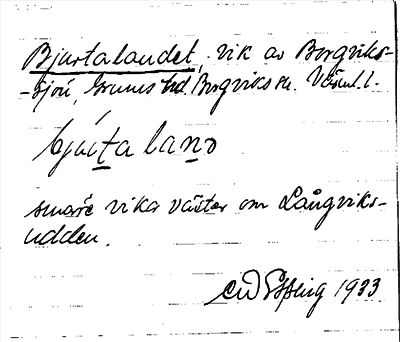 Bjurtalandet, vik av Borgviks-
-sjön, Grums hd. Borgviks sn. Värml. l.
bju̇ta land
smärre vik väster om Långviks-
udden.
1933